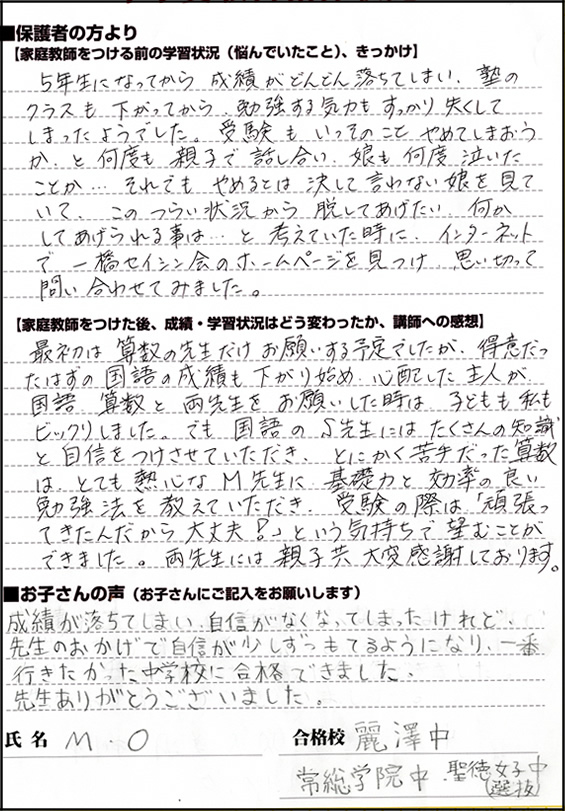 ■保護者の方より
【家庭教師をつける前の学習状況（悩んでいたこと）、きっかけ】
5年生になってから 成績がどんどん落ちてしまい、塾の
クラスも 下がってから、勉強する気力も すっかり 失くして
しまったようでした。受験も いっそのこと やめてしまおう
か、と 何度も 親子で 話し合い、娘も 何度 泣いた
ことか… それでも やめるとは 決して 言わない娘を見て
いて、この つらい状況から 脱してあげたい、何か
してあげられる事は… と 考えていた時に、インターネット
で 一橋セイシン会のホームページを見つけ、思い切って
問い合わせてみました。
【家庭教師をつけた後、成績・学習状況はどう変わったか、講師への感想】
最初は 算数の先生だけ お願いする予定でしたが、得意だっ
たはずの 国語の成績も 下がり始め、心配した主人が、
国語、算数と 両先生を お願いした時は、子どもも私も
ビックリしました。でも 国語の S先生には たくさんの知識
と 自信をつけさせていただき、とにかく苦手だった算数
は、とても 熱心な M先生に 基礎力と 効率の良い
勉強法を 教えていただき、受験の際は「頑張っ
てきたんだから 大丈夫！」という気持ちで 望むことが
できました。両先生には 親子共 大変感謝しております。
■お子さんの声（お子さんにご記入をお願いします）
成績が落ちてしまい、自信がなくなってしまったけれど、
先生のおかげで自信が少しずつもてるようになり、一番
行きたかった中学校に合格できました。
先生ありがとうございました。
氏名 M.O 合格校 麗澤中
常総学院中、聖徳女子中
（選抜）